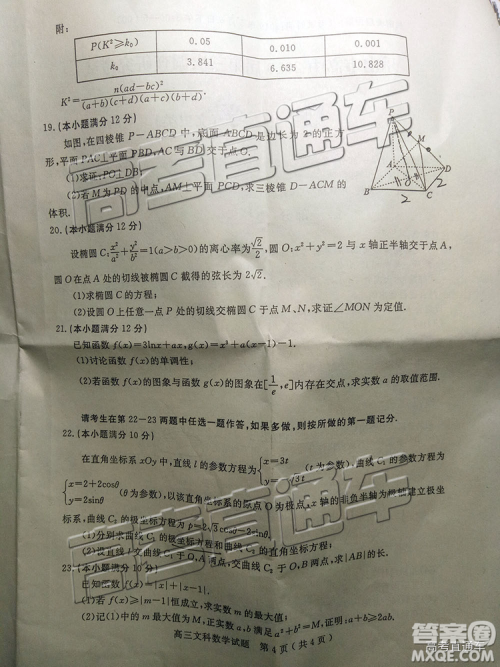 附:
P(K²≥k₀) 0.05 0.010 0.001
k₀ 3.841 6.635 10.828
K²=n(ad-bc)²/((a+b)(c+d)(a+c)(b+d)).
19.(本小题满分12分)
如图,在四棱锥P-ABCD中,底面ABCD是边长为2的正方
形,平面PAC⊥平面PBD,AC与BD交于点O.
(1)求证:PO⊥DB;
(2)若M为PD的中点,AM⊥平面PCD,求三棱锥D-ACM的
体积.
P
M
A
D
B
C
20.(本小题满分12分)
设椭圆C:x²/a²+y²/b²=1(a>b>0)的离心率为√2/2,圆O:x²+y²=2与x轴正半轴交于点A,
圆O在点A处的切线被椭圆C截得的弦长为2√2.
(1)求椭圆C的方程;
(2)设圆O上任意一点P处的切线交椭圆C于点M、N,求证∠MON为定值.
21.(本小题满分12分)
已知函数f(x)=3lnx+ax,g(x)=x³+a(x-1)-1.
(1)讨论函数f(x)的单调性;
(2)若函数f(x)的图象与函数g(x)的图象在[1/e,e]内存在交点,求实数a的取值范围.
请考生在第22-23两题中任选一题作答,如果多做,则按所做的第一题记分.
22.(本小题满分10分)
在直角坐标系xOy中,直线l的参数方程为{x=3t (t为参数),曲线C₁的参数方程为
{x=2+2cosθ y=2sinθ (θ为参数),以该直角坐标系的原点O为极点,x轴的非负半轴为极轴建立极坐
标系,曲线C₂的极坐标方程为
(1)分别求曲线C₁的极坐标方程和曲线C₂的直角坐标方程;
(2)设直线l交曲线C₁于O,A两点,交曲线C₂于O,B两点,求|AB|的长.
23.(本小题满分10分)
已知函数f(x)=|x|+|x-1|.
(1)若f(x)≥|m-1|恒成立,求实数m的最大值;
(2)记(1)中的m最大值为M,正实数a,b满足a²+b²=M,证明:a+b≥2ab.
高三文科数学试题 第4页(共4页)
高考直通车
高考直通车
高考直通车
高考直通车
答案圈
MXQE.COM